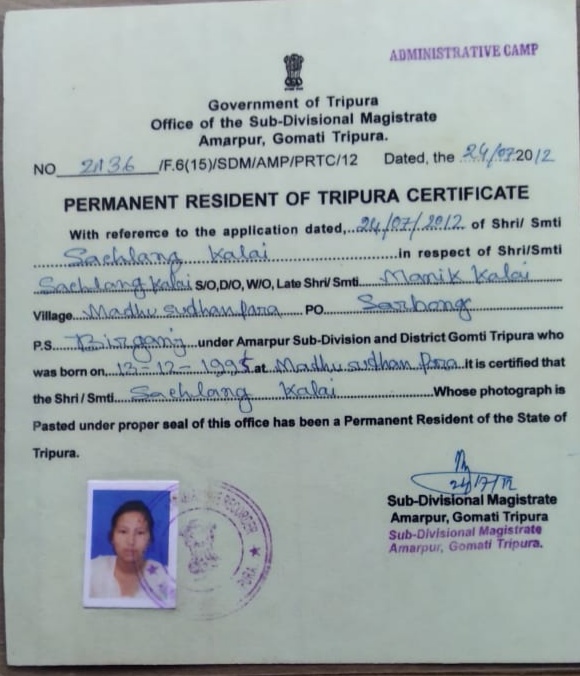 ADMINISTRATIVE CAMP
Government of Tripura
Office of the Sub-Divisional Magistrate
Amarpur, Gomati Tripura.
NO 2136 /F.6(15)/SDM/AMP/PRTC/12 Dated, the 24/07 2012
PERMANENT RESIDENT OF TRIPURA CERTIFICATE
With reference to the application dated, 24/07/2012 of Shri/ Smti
Sachlang Kalai in respect of Shri/Smti
Sachlang Kalai S/O,D/O, W/O, Late Shri/ Smti. Manik Kalai
Village Madhu sudhan para PO Sarbong
P.S. Birganj under Amarpur Sub-Division and District Gomti Tripura who
was born on, 13-12-1995 at Madhu sudhan Para it is certified that
the Shri / Smti. Sachlang Kalai Whose photograph is
Pasted under proper seal of this office has been a Permanent Resident of the State of
Tripura.
24/7/12
Sub-Divisional Magistrate
Amarpur, Gomati Tripura
Sub-Divisional Magistrate
Amarpur, Gomati Tripura.